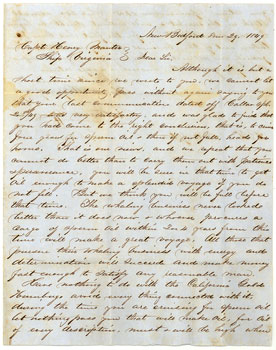 New Bedford Nov 29. 1849
Capt Henry
Ship Virginia Dear Sir
Although it is but a
short time since we wrote to you, we cannot let
a good opportunity pass without again saying to you
that your last communication dated off Callao
was very satisfactory, and was glad to find that
you had come to the right conclusion, that is, to cruise
your ground for sperm oil & if not full, head for
home. That is our view, and we repeat that you
cannot do better than to carry them out with patience
perseverance, you will be sure in that time to get
oil enough to make a splendid voyage if you do
not fill. But we think you will be full before
that time. The whaling business never looked
better than it does now & whoever procures a
cargo of sperm oil within two years from this
time will make a great voyage. All those that
pursue this whaling business with energy and
determination will succeed and make money
just enough to satisfy any reasonable man.
Have nothing to do with the California Gold
Humbug avoid every thing connected with it.
During the time you are cruising for sperm oil
let nothing pass you that will make oil, for oil
of every description must & will be high when